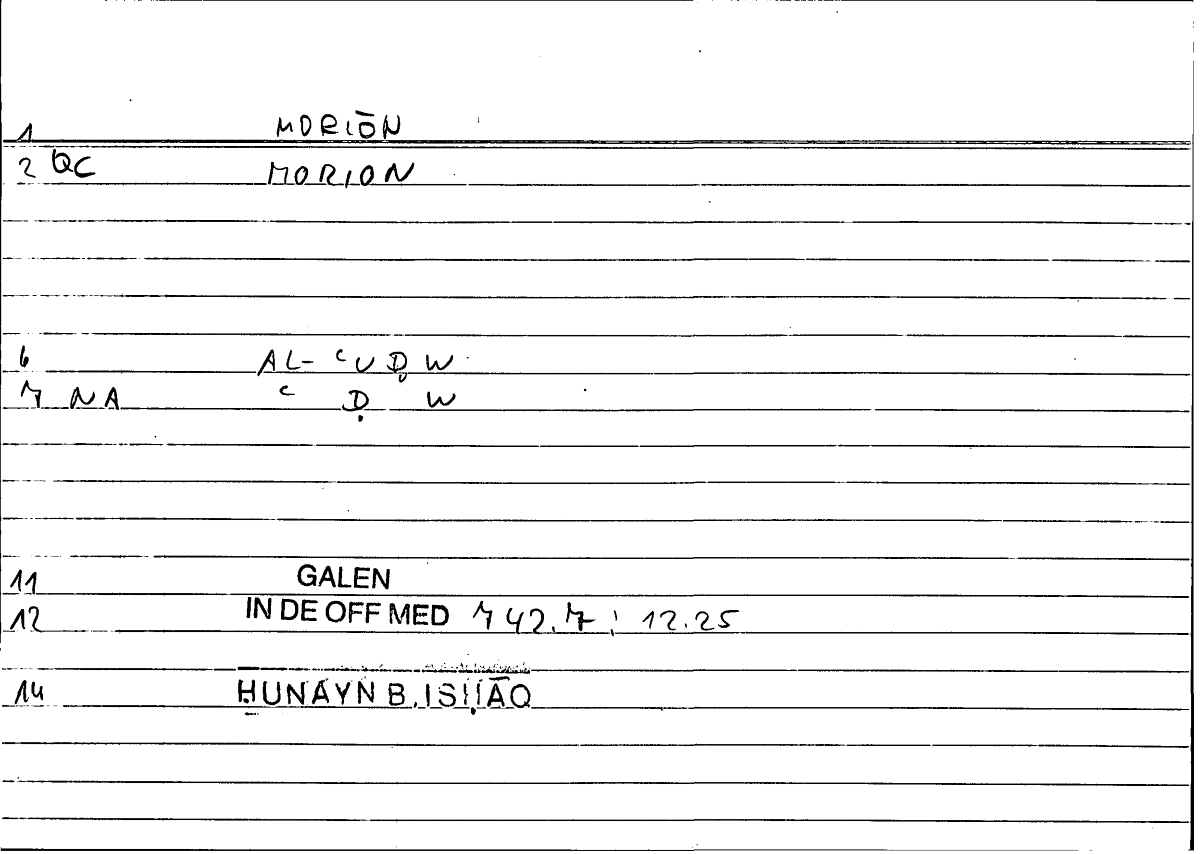 1 MORIŌN
2 QC MORION
6 AL- ʿUḌW
7 NA ʿ Ḍ W
11 GALEN
12 IN DE OFF MED 742.7; 12.25
14 ḤUNAYN B. ISḤĀQ